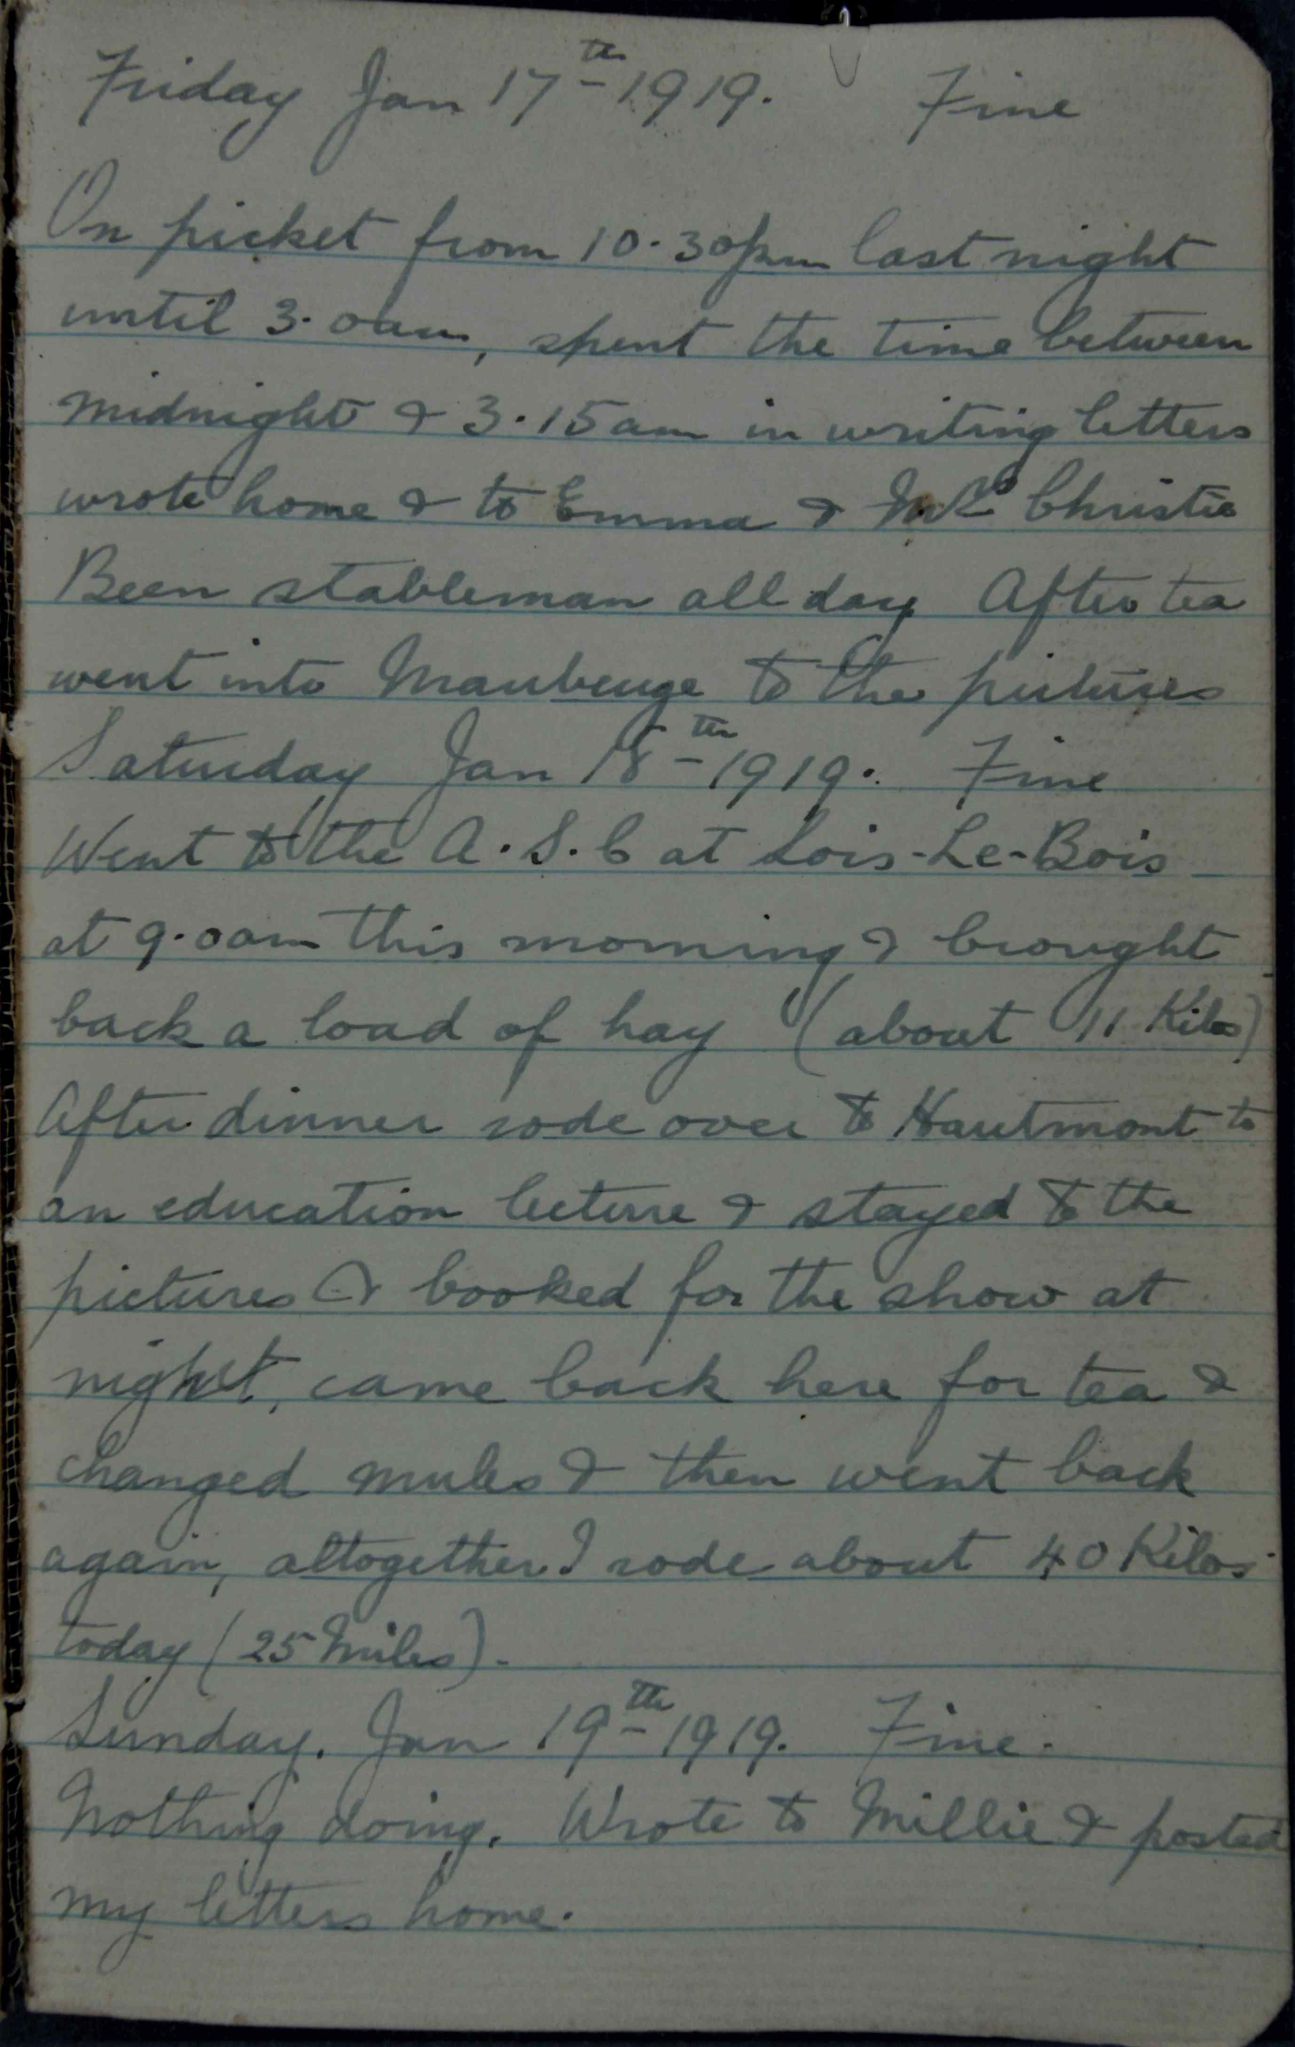 Friday Jan 17th 1919. Fine
On picket from 10.30pm last night
until 3.0am, spent the time between
midnight & 3.15am in writing letters
wrote home & to Emma & Mrs Christie
Been stableman all day After tea
went into Maubeuge to the pictures
Saturday Jan 18th 1919. Fine
Went to the A.S.C at Sois-Le-Bois
at 9.0am this morning & brought
back a load of hay (about 11 Kilos)
After dinner rode over to Hautmont to
an education lecture & stayed to the
pictures & booked for the show at
night, came back here for tea &
changed mules & then went back
again, altogether I rode about 40 Kilos
today (25 Miles).
Sunday. Jan 19th 1919. Fine.
Nothing doing. Wrote to Millie & posted
my letters home.